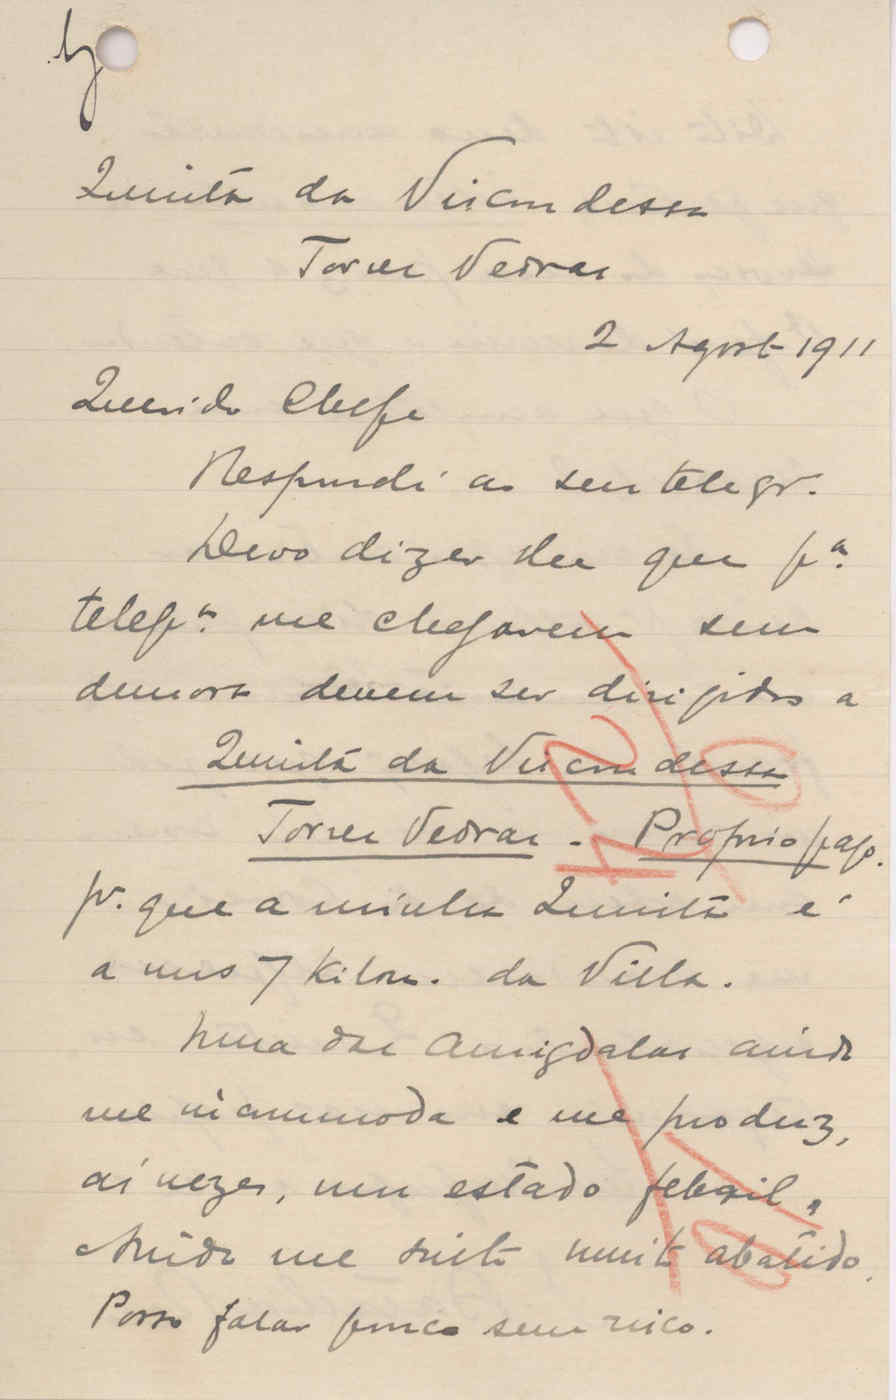 Quinta da Viscondessa
Torres Vedras
2 Agosto 1911
Querido Chefe
Respondi ao seu telegr.
Devo dizer lhe que pª.
telegrª. me chegarem sem
demora devem ser dirigidos a
Quinta da Viscondessa
Torres Vedras - Proprio pago.
pr. que a minha Quinta é
a uns 7 Kilom. da Villa.
Uma das amigdalas ainda
me incommoda e me produz,
ás vezes, um estado febril,
Ainda me sinto muito abatido.
Posso falar pouco sem risco.